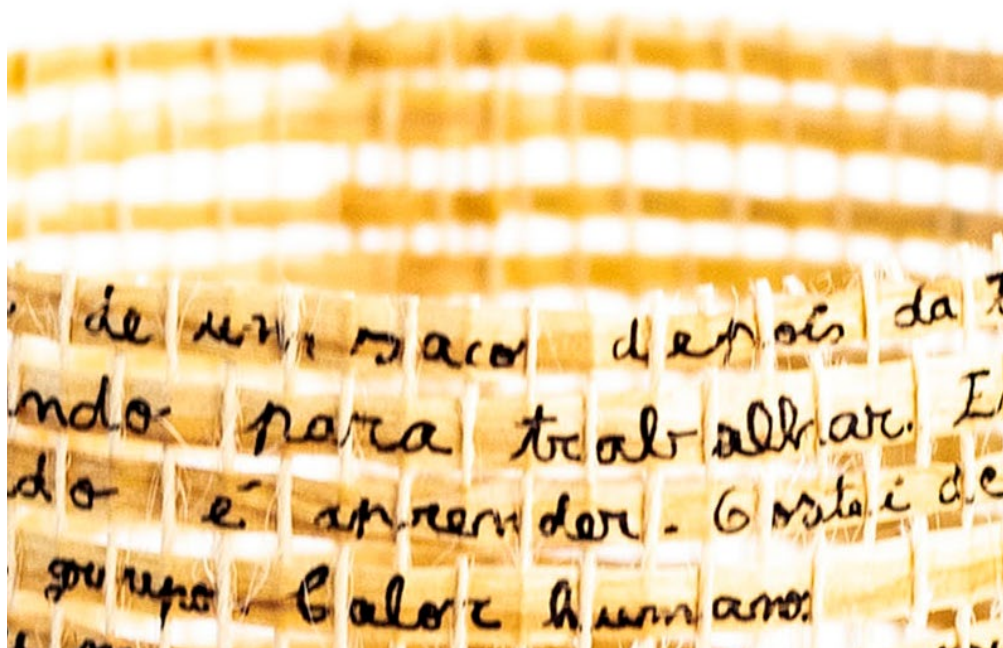 de um saco depois da
ndo para trabalhar. E
do é aprender. Gostei de
grupo. Calor humano.